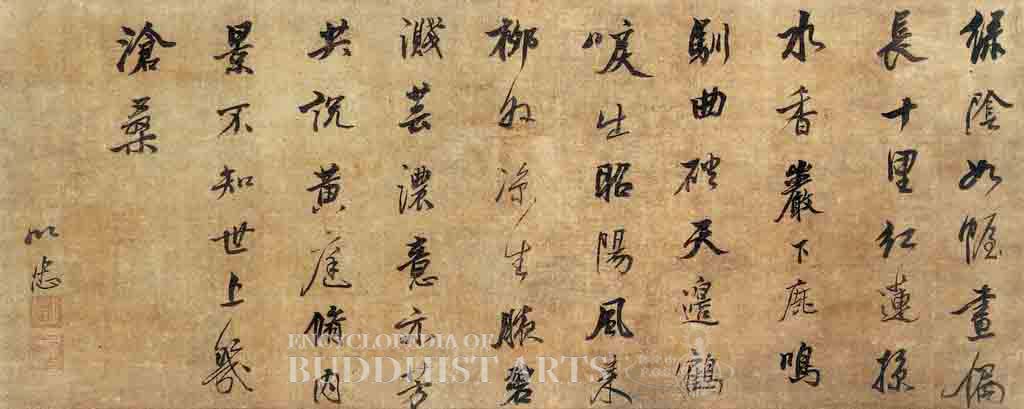 綠陰如幄晝偏
長十里紅蓮
水香巖下鹿鳴
馴曲磴天邊鶴
唳生昭陽風來
柳外涼生腋碧
濺芸濃意亦芳
共說黃庭脩內
景不知世上幾
滄桑
如忠
ENCYCLOPEDIA OF
BUDDHIST ARTS